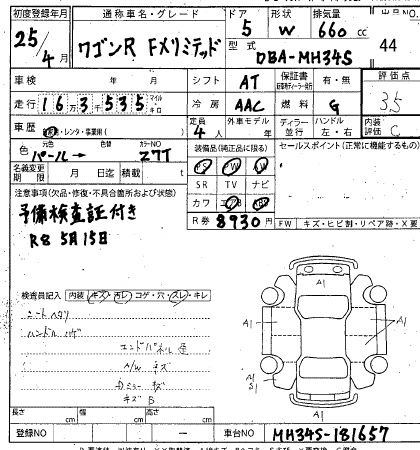 初度登録年月 通称車名・グレード ドア 形状 排気量
25/4月 ワゴンR FXリミテッド 5 W 660cc
型式 DBA-MH34S 44
車検 年 月 シフト AT 保証書 有・無 評価点
走行 16万3千535 マイル キロ 冷房 AAC 燃料 G 3.5
車歴 レンタ・事業用( ) 定員 4人 外車モデル 年 ディーラー 並行 ハンドル 左・右 内装評価 C
色 元色 パール→ 色替 カラーNO Z7T 装備品(純正品に限る) セールスポイント(正常に機能するもの)
名義変更期限 月 日迄 積載 t PS PW AW
注意事項(欠品・修復・不具合箇所および状態) SR TV ナビ
予備検査証付き カワ エアB
R8 5月15日 R券 8930 FW キズ・ヒビ割・リペア跡・X要
検査員記入 内装 キズ・汚レ・コゲ・穴・スレ・キレ
シートヘタリ
ハンドルハゲ
エンドパネル歪
A/Wキズ
Dミラーキズ
キズB
A1
A1 A1
A1 A1
S1
A1
長さ cm 幅 cm 高さ cm
登録NO ー 車台NO MH34S-181657